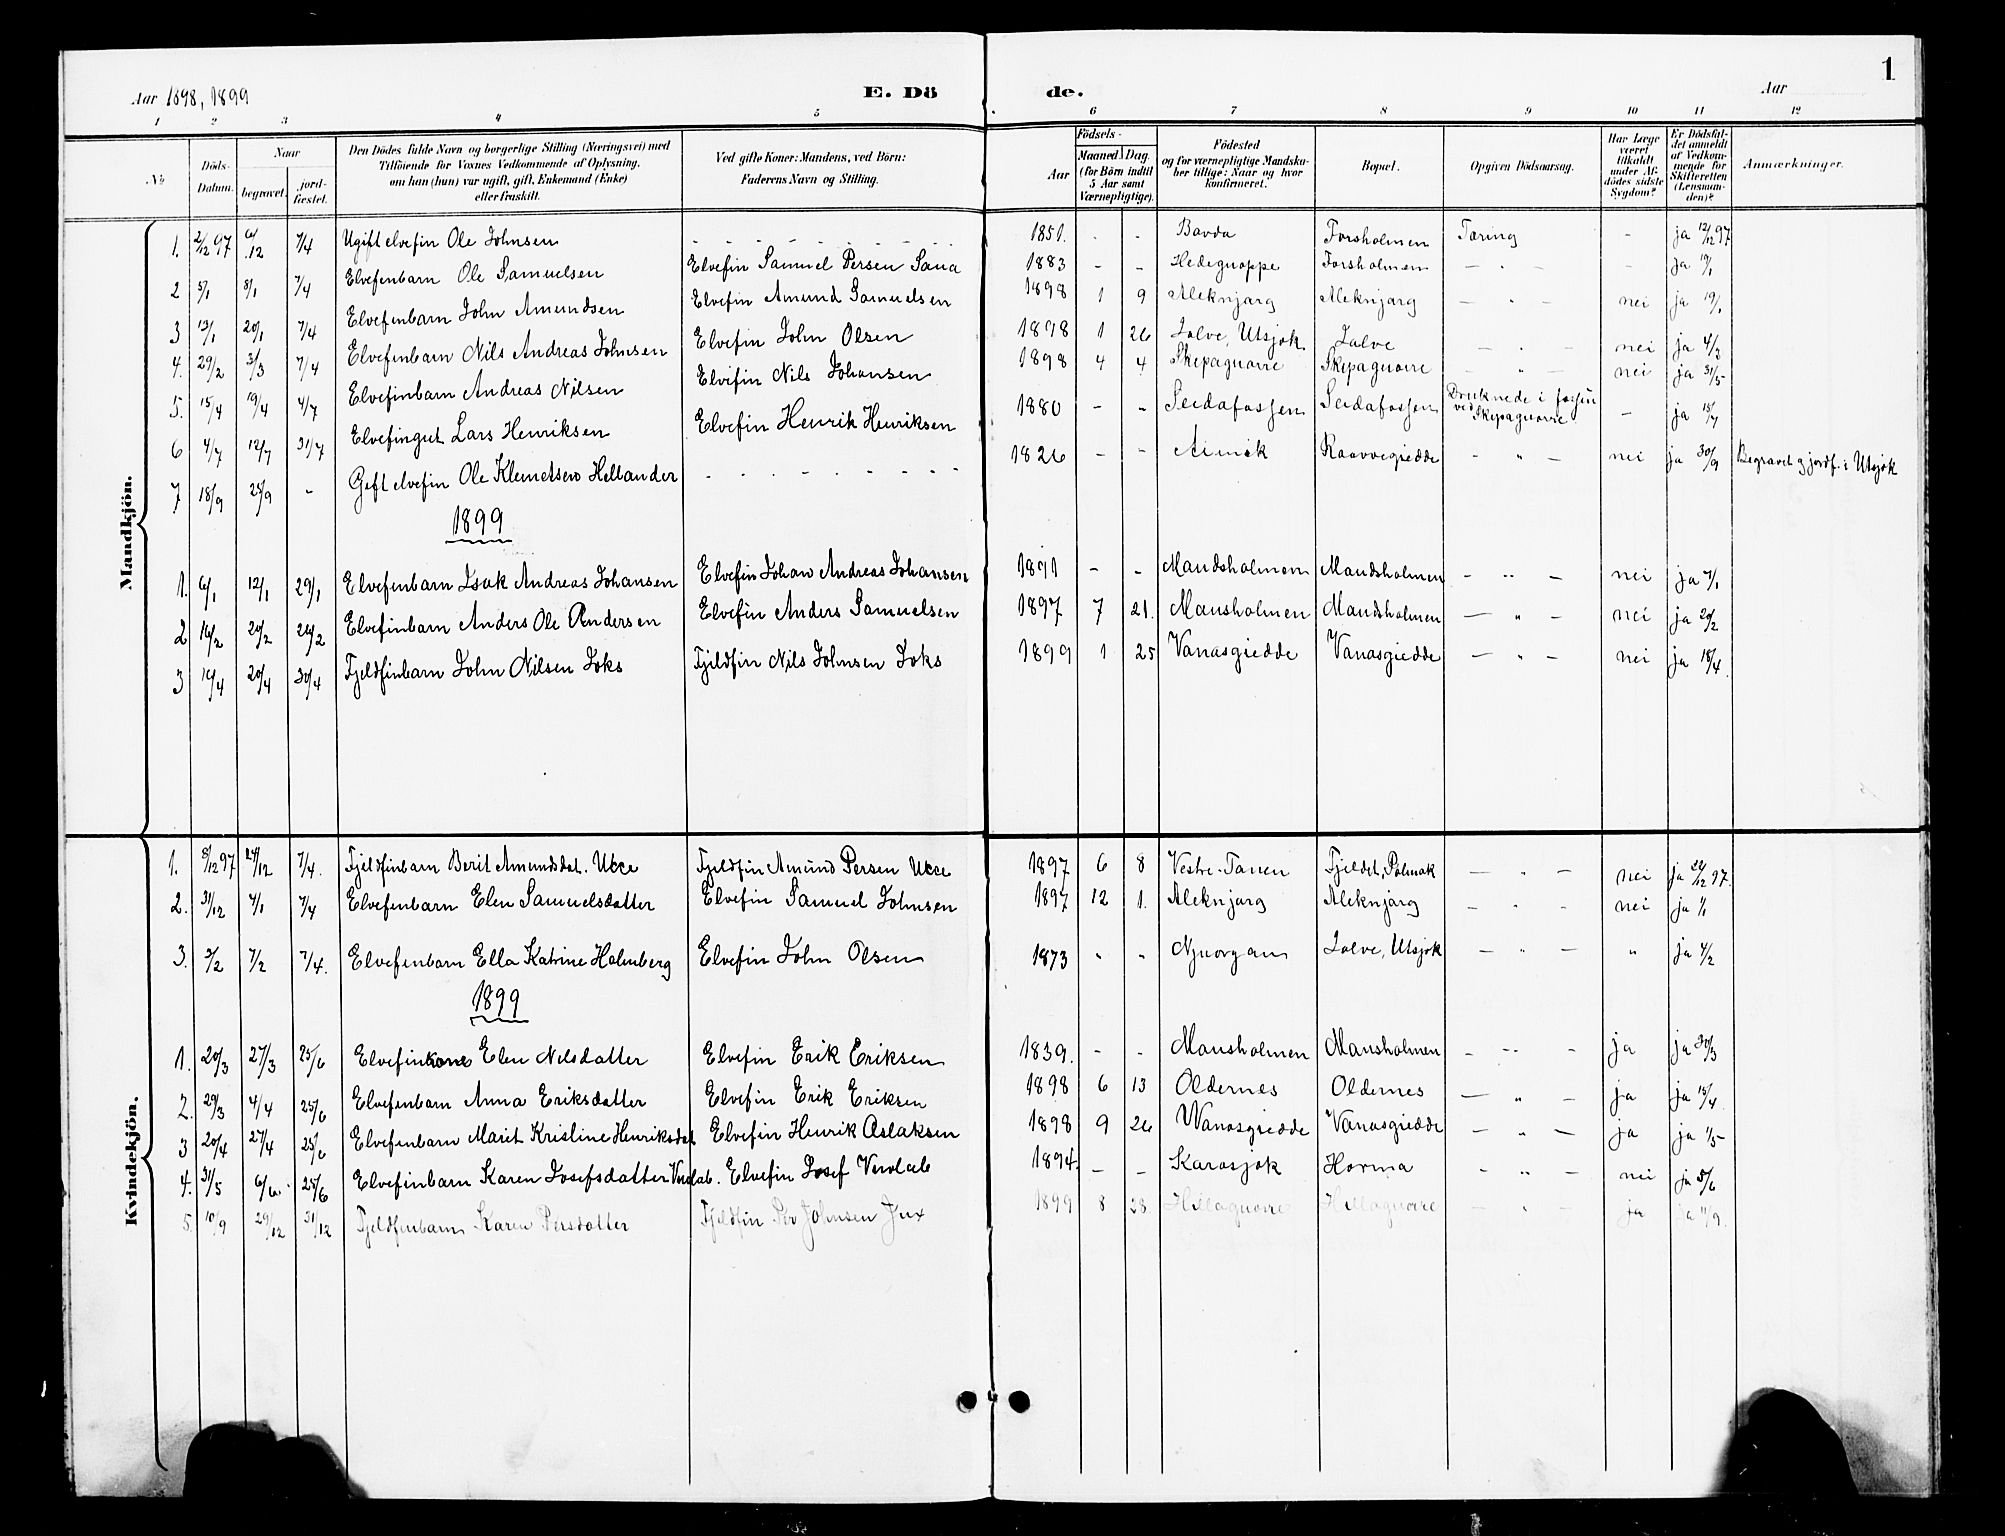 Aar 1898, 1899
E. Dö de.
Aar
1
1 2 3 4 5 6 7 8 9 10 11 12
No
Döds-Datum.
Naar
begravet.
jordfæstet.
Den Dödes fulde Navn og borgerlige Stilling (Næringsvei) med
Tilföiende for Voxnes Vedkommende af Oplysning,
om han (hun) var ugift, gift, Enkemand (Enke)
eller fraskilt.
Ved gifte Koner: Mandens, ved Börn:
Faderens Navn og Stilling.
Födsels-
Aar
Maaned. Dag.
(for Börn indtil
5 Aar samt
Værnepligtige).
Födested
og for værnepligtige Mandska-
ber tillige: Naar og hvor
konfirmeret.
Bopæl.
Opgiven Dödsaarsag.
Har Læge
været
tilkaldt
under Af-
dödes sidste
Sygdom?
Er Dödsfal-
det anmeldt
af Vedkom-
mende for
Skifteretten
(Lensman-
den)?
Anmærkninger.
Mandkjön.
1. 2/12 97 6/12 7/4 Ugift elvefin Ole Johnsen - - - - - - - 1851. - - Bavda Forsholmen Tæring - ja 12/12 97
2 5/1 8/1 7/4 Elvefenbarn Ole Samuelsen Elvefin Samuel Persen Sana 1883 - - Hedeguoppe Forsholmen - " - - ja 19/1
3 13/1 20/1 7/4 Elvefenbarn John Amundsen Elvefin Amund Samuelsen 1898 1 9 Aleknjarg Aleknjarg - " - nei ja 19/1
4. 29/2 3/3 7/4 Elvefenbarn Nils Andreas Johnsen Elvefin John Olsen 1898 1 26 Jalve, Utsjok Jalve - " - nei ja 4/3
5. 15/4 19/4 4/7 Elvefinbarn Andreas Nilsen Elvifin Nils Johansen 1898 4 4 Skipaguorre Skipaguorre - " - nei ja 31/5
6 4/7 12/7 31/7 Elvefingut Lars Henriksen Elvefin Henrik Henriksen 1880 - - Seidafossen Seidafossen Druknede i fossen
ved Skipaguorre - ja 15/7
7 18/9 25/9 - Gift elvefin Ole Klemetsen Hellander - - - - - - - 1826 - - Aimik Raavvegiedde - " - nei ja 30/9 Begravet og jordf. i Utsjok
1899
1. 6/1 12/1 29/1 Elvefenbarn Isak Andreas Johansen Elvefin Johan Andreas Johansen 1891 - - Mandsholmen Mandsholmen - " - nei ja 7/1
2 16/2 20/2 26/2 Elvefinbarn Anders Ole Andersen Elvefin Anders Samuelsen 1897 7 21. Mansholmen Mandsholmen - " - nei ja 20/2
3 16/4 20/4 30/4 Fjeldfinbarn John Nilsen Joks Fjeldfin Nils Johnsen Joks 1899 1 25 Vanasgiedde Vanasgiedde - " - nei ja 18/4
Kvindekjön.
1. 8/12 97 24/12 7/4. Fjeldfinbarn Berit Amundsdat. Ucce Fjeldfin Amund Persen Ucce 1897 6 8 Vestre-Tanen Fjeldet, Polmak - " - nei ja 24/12 97.
2. 31/12 4/1 7/4 Elvefenbarn Elen Samuelsdatter Elvefin Samuel Johnsen 1897 12 1. Aleknjarg Aleknjarg - " - nei ja 1/1
3. 2/2 7/2 7/4. Elvefenbarn Ella Katrine Holmberg Elvefin John Olsen 1873 " " Njuorgam Jalve, Utsjok - " - " ja 4/2
1899
1. 20/3 27/3 25/6 Elvefinkone Elen Nilsdatter Elvefin Erik Eriksen 1839. - - Mansholmen Mansholmen - " - ja ja 30/3
2. 29/3 4/4 25/6 Elvefenbarn Anna Eriksdatter Elvefin Erik Eriksen 1898 6 13 Oldernes Oldernes - " - ja ja 15/4.
3 20/4 27/4 25/6 Elvefenbarn Marit Kristine Henriksdat Elvefin Henrik Aslaksen 1898 9 26 Wanasgiedde Vanasgiedde - " - ja ja 1/5
4. 31/5 6/6 25/6 Elvefinbarn Karen Josefsdatter Elvefin Josef 1894. - - Karasjok Horma - " - nei ja 5/6
5. 10/9 29/12 31/12 Fjeldfenbarn Karen Persdatter Fjeldfin Per Johnsen Jux 1899 8 28. Hillaguorre Hillaguorre - " - ja ja 11/9.